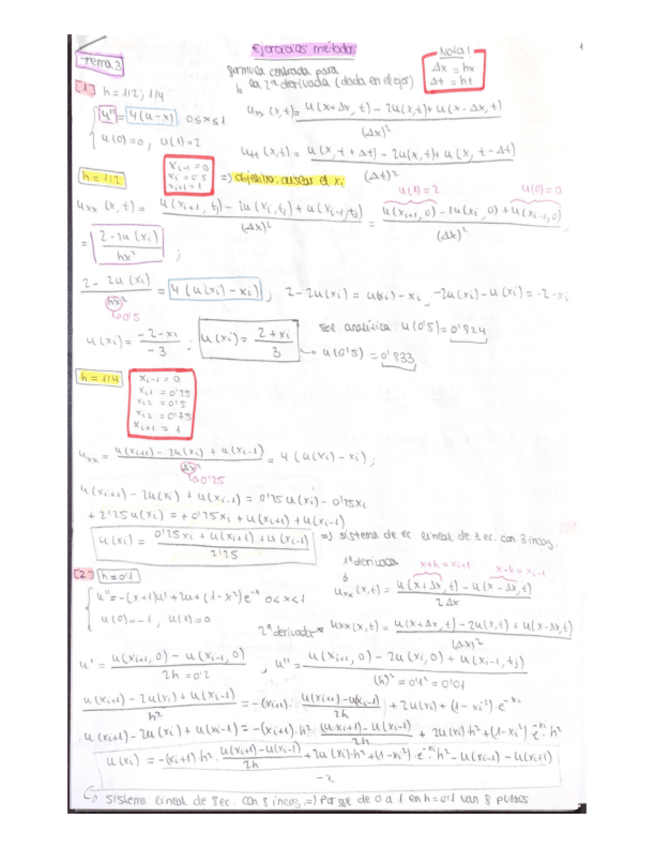 Ejercicios métodos
Tema 3
Nota!
Δx = hx
Δt = ht
fórmula centrada para
la 2ª derivada (dada en el ejer)
[1] h = 1/2, 1/4
u'' = 4(u-x) 0≤x≤1
u(0)=0, u(1)=2
uxx (x,t) = u(x+Δx, t) - 2u(x,t) + u(x-Δx, t) / (Δx)²
utt (x,t) = u(x, t+Δt) - 2u(x,t) + u(x, t-Δt) / (Δt)²
h = 1/2
xi-1 = 0
xi = 0'5
xi+1 = 1
=) objetivo: buscar el xi
u(1)=2 u(0)=0
uxx (x,t) = u(xi+1, tj) - 2u(xi, tj) + u(xi-1, tj) / (Δx)² = u(xi+1, 0) - 2u(xi, 0) + u(xi-1, 0) / (Δx)²
= 2-2u(xi) / hx² ;
2-2u(xi) / hx² = 4(u(xi)-xi) ; 2-2u(xi) = u(xi)-xi , -2u(xi)-u(xi) = -2-xi
0'5
u(xi) = -2-xi / -3 ; u(xi) = 2+xi / 3
sol analítica: u(0'5) = 0'824
u(0'5) = 0'833
h = 1/4
xi-1 = 0
xi1 = 0'25
xi2 = 0'5
xi3 = 0'75
xi+1 = 1
uxx = u(xi+1) - 2u(xi) + u(xi-1) / Δx² = 4(u(xi)-xi) ;
0'25
u(xi+1) - 2u(xi) + u(xi-1) = 0'25u(xi) - 0'25xi
+ 2'25u(xi) = + 0'25xi + u(xi+1) + u(xi-1)
u(xi) = 0'25xi + u(xi+1) + u(xi-1) / 2'25 =) sistema de ec lineal de 3 ec. con 3 incog.
[2] h = 0'1
1ª derivada
x+h = xi+1 x-h = xi-1
u'' = -(x+1)u' + 2u + (1-x²)e^-x 0<x<1
u(0) = -1, u(1) = 0
uxx (x,t) = u(x+Δx, t) - u(x-Δx, t) / 2Δx
2ª derivada uxx (x,t) = u(x+Δx, t) - 2u(x,t) + u(x-Δx,t) / (Δx)²
u' = u(xi+1, 0) - u(xi-1, 0) / 2h = 0'2 , u'' = u(xi+1, 0) - 2u(xi, 0) + u(xi-1, tj) / (h)² = 0'1² = 0'01
u(xi+1) - 2u(xi) + u(xi-1) / h² = -(xi+1)· u(xi+1)-u(xi-1) / 2h + 2u(xi) + (1-xi²)·e^-xi
u(xi+1) - 2u(xi) + u(xi-1) = -(xi+1)·h²· u(xi+1)-u(xi-1) / 2h + 2u(xi)·h² + (1-xi²)·e^-xi·h²
u(xi) = -(xi+1)·h²· u(xi+1)-u(xi-1) / 2h + 2u(xi)·h² + (1-xi²)·e^-xi·h² - u(xi-1) - u(xi+1) / -2
sistema lineal de 8 ec. con 8 incog. =) Porque de 0 a 1 en h=0'1 van 8 puntos